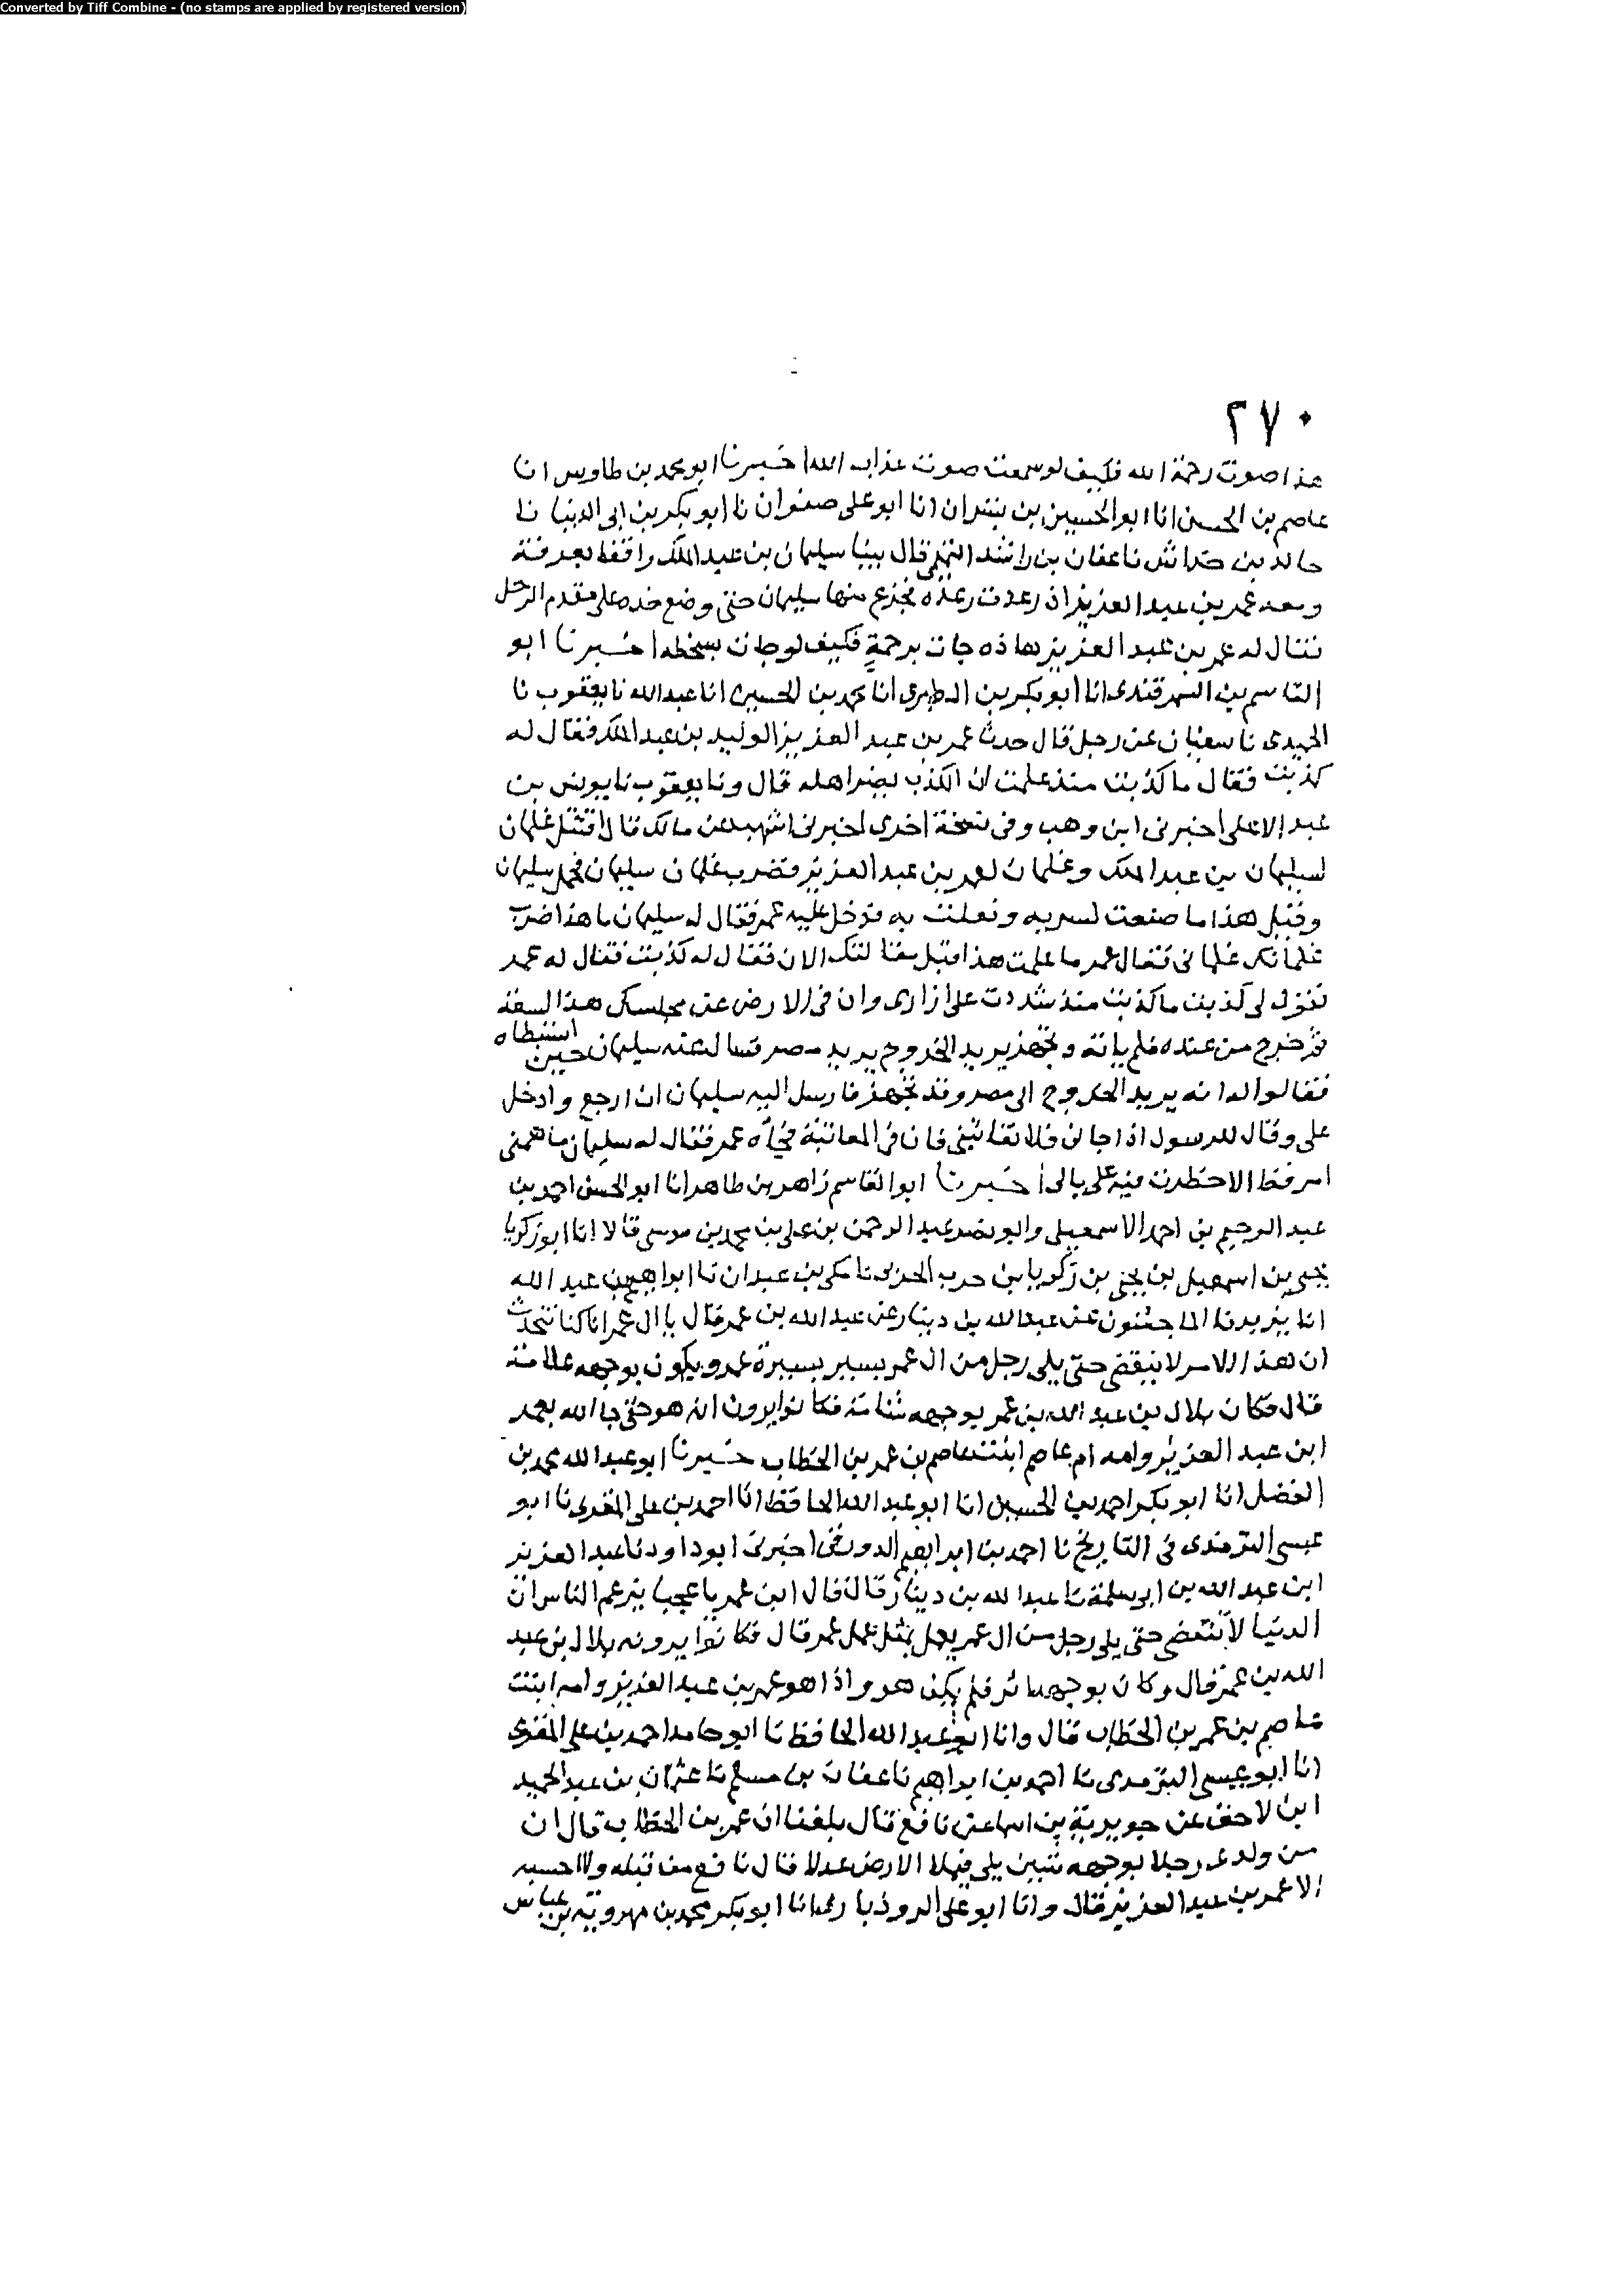 Converted by Tiff Combine - (no stamps are applied by registered version)
٢٧٠
هذا صوت رحمة الله فكيف لو سمعت صوت عذاب الله اخبرنا ابو محمد بن طاوس انا
عاصم بن الحسن انا ابو الحسين بن بشران انا ابو على صفوان نا ابو بكر بن ابى الدنيا نا
خالد بن خداش نا عفان بن راشد التميمى قال بينا سليمان بن عبد الملك واقفا بعرفة
ومعه عمر بن عبد العزيز اذ رعدت رعده فجزع منها سليمان حتى وضع خده على مقدم الرحل
فقال له عمر بن عبد العزيز هاذه جات برحمة فكيف لو جات بسخطه اخبرنا ابو
القاسم بن السمرقندى انا ابو بكر بن الطبرى انا محمد بن الحسين انا عبد الله نا يعقوب نا
الحميدى نا سفيان عن رجل قال حدث عمر بن عبد العزيز الوليد بن عبد الملك فقال له
كذبت فقال ما كذبت منذ علمت ان الكذب يضر اهله قال ونا يعقوب نا يونس بن
عبد الاعلى اخبرنى ابن وهب وفى نسخة اخرى اخبرنى اشهب عن مالك قال اقتتل غلمان
لسليمان بن عبد الملك وغلمان لعمر بن عبد العزيز فضرب غلمان سليمان فحمل سليمان
وقيل هذا ما صنعت لسربه وفعلت به فدخل عليه عمر فقال له سليمان ما هذا ضرب
غلمانك غلمانى فقال عمر ما علمت هذا قبل مقالتك الان فقال له كذبت فقال له عمر
تقول لى كذبت ما كذبت منذ شددت على ازارى وان فى الارض عن مجلسك هذا لسعة
فخرج من عنده فلم ياته وتجهز يريد الخروج يريد مصر فسال عنه سليمان حين استبطاه
فقالوا له انه يريد الخروج الى مصر وقد تجهز فارسل اليه سليمان ان ارجع وادخل
على وقال للرسول اذا جانى فلا تعاتبنى فان فى المعاتبة فجاه عمر فقال له سليمان ما همنى
امر قط الا خطرت فيه على بالى اخبرنا ابو القاسم زاهر بن طاهر انا ابو الحسن احمد بن
عبد الرحيم بن احمد الاسمعيلى وابو نصر عبد الرحمن بن على بن محمد بن موسى قالا انا ابو زكريا
يحيى بن اسمعيل بن يحيى بن زكريا بن حرب الحربى نا مكى بن عبدان نا ابراهيم بن عبد الله
انا يزيد نا الماجشون عن عبد الله بن دينار عن عبد الله بن عمر قال يا ال عمر انا كنا نتحدث
ان هذا الامر لا ينقضى حتى يلى رجل من ال عمر يسير بسيرة عمر ويكون بوجهه علامة
قال فكان بلال بن عبد الله بن عمر بوجهه شامة فكانوا يرون انه هو حتى جا الله بعمر
ابن عبد العزيز وامه ام عاصم ابنت عاصم بن عمر بن الخطاب خبرنا ابو عبد الله محمد بن
الفضل انا ابو بكر احمد بن الحسين انا ابو عبد الله الحافظ انا احمد بن على المقرى نا ابو
عيسى الترمذى فى التاريخ نا احمد بن ابراهيم الدورقى اخبرنى ابو داود نا عبد العزيز
ابن عبد الله بن ابى سلمة نا عبد الله بن دينار قال قال ابن عمر يا عجبا يزعم الناس ان
الدنيا لا تنقضى حتى يلى رجل من ال عمر يعمل بمثل عمل عمر قال فكانوا يرونه بلال بن عبد
الله بن عمر قال وكان بوجهه اثر فلم يكن هو واذا هو عمر بن عبد العزيز وامه ابنت
عاصم بن عمر بن الخطاب قال وانا ابو عبد الله الحافظ نا ابو حامد احمد بن على المقرى
انا ابو عيسى الترمدى نا احمد بن ابراهيم نا عفان بن مسلم نا عثمان بن عبد الحميد
ابن لاحق عن جويرية بن اسما عن نافع قال بلغنا ان عمر بن الخطاب قال ان
من ولدى رجلا بوجهه شين يلى فيملا الارض عدلا قال نافع من قبله ولا احسبه
الا عمر بن عبد العزيز قال وانا ابو على الروذبارى انا ابو بكر محمد بن مهروية بن عباس